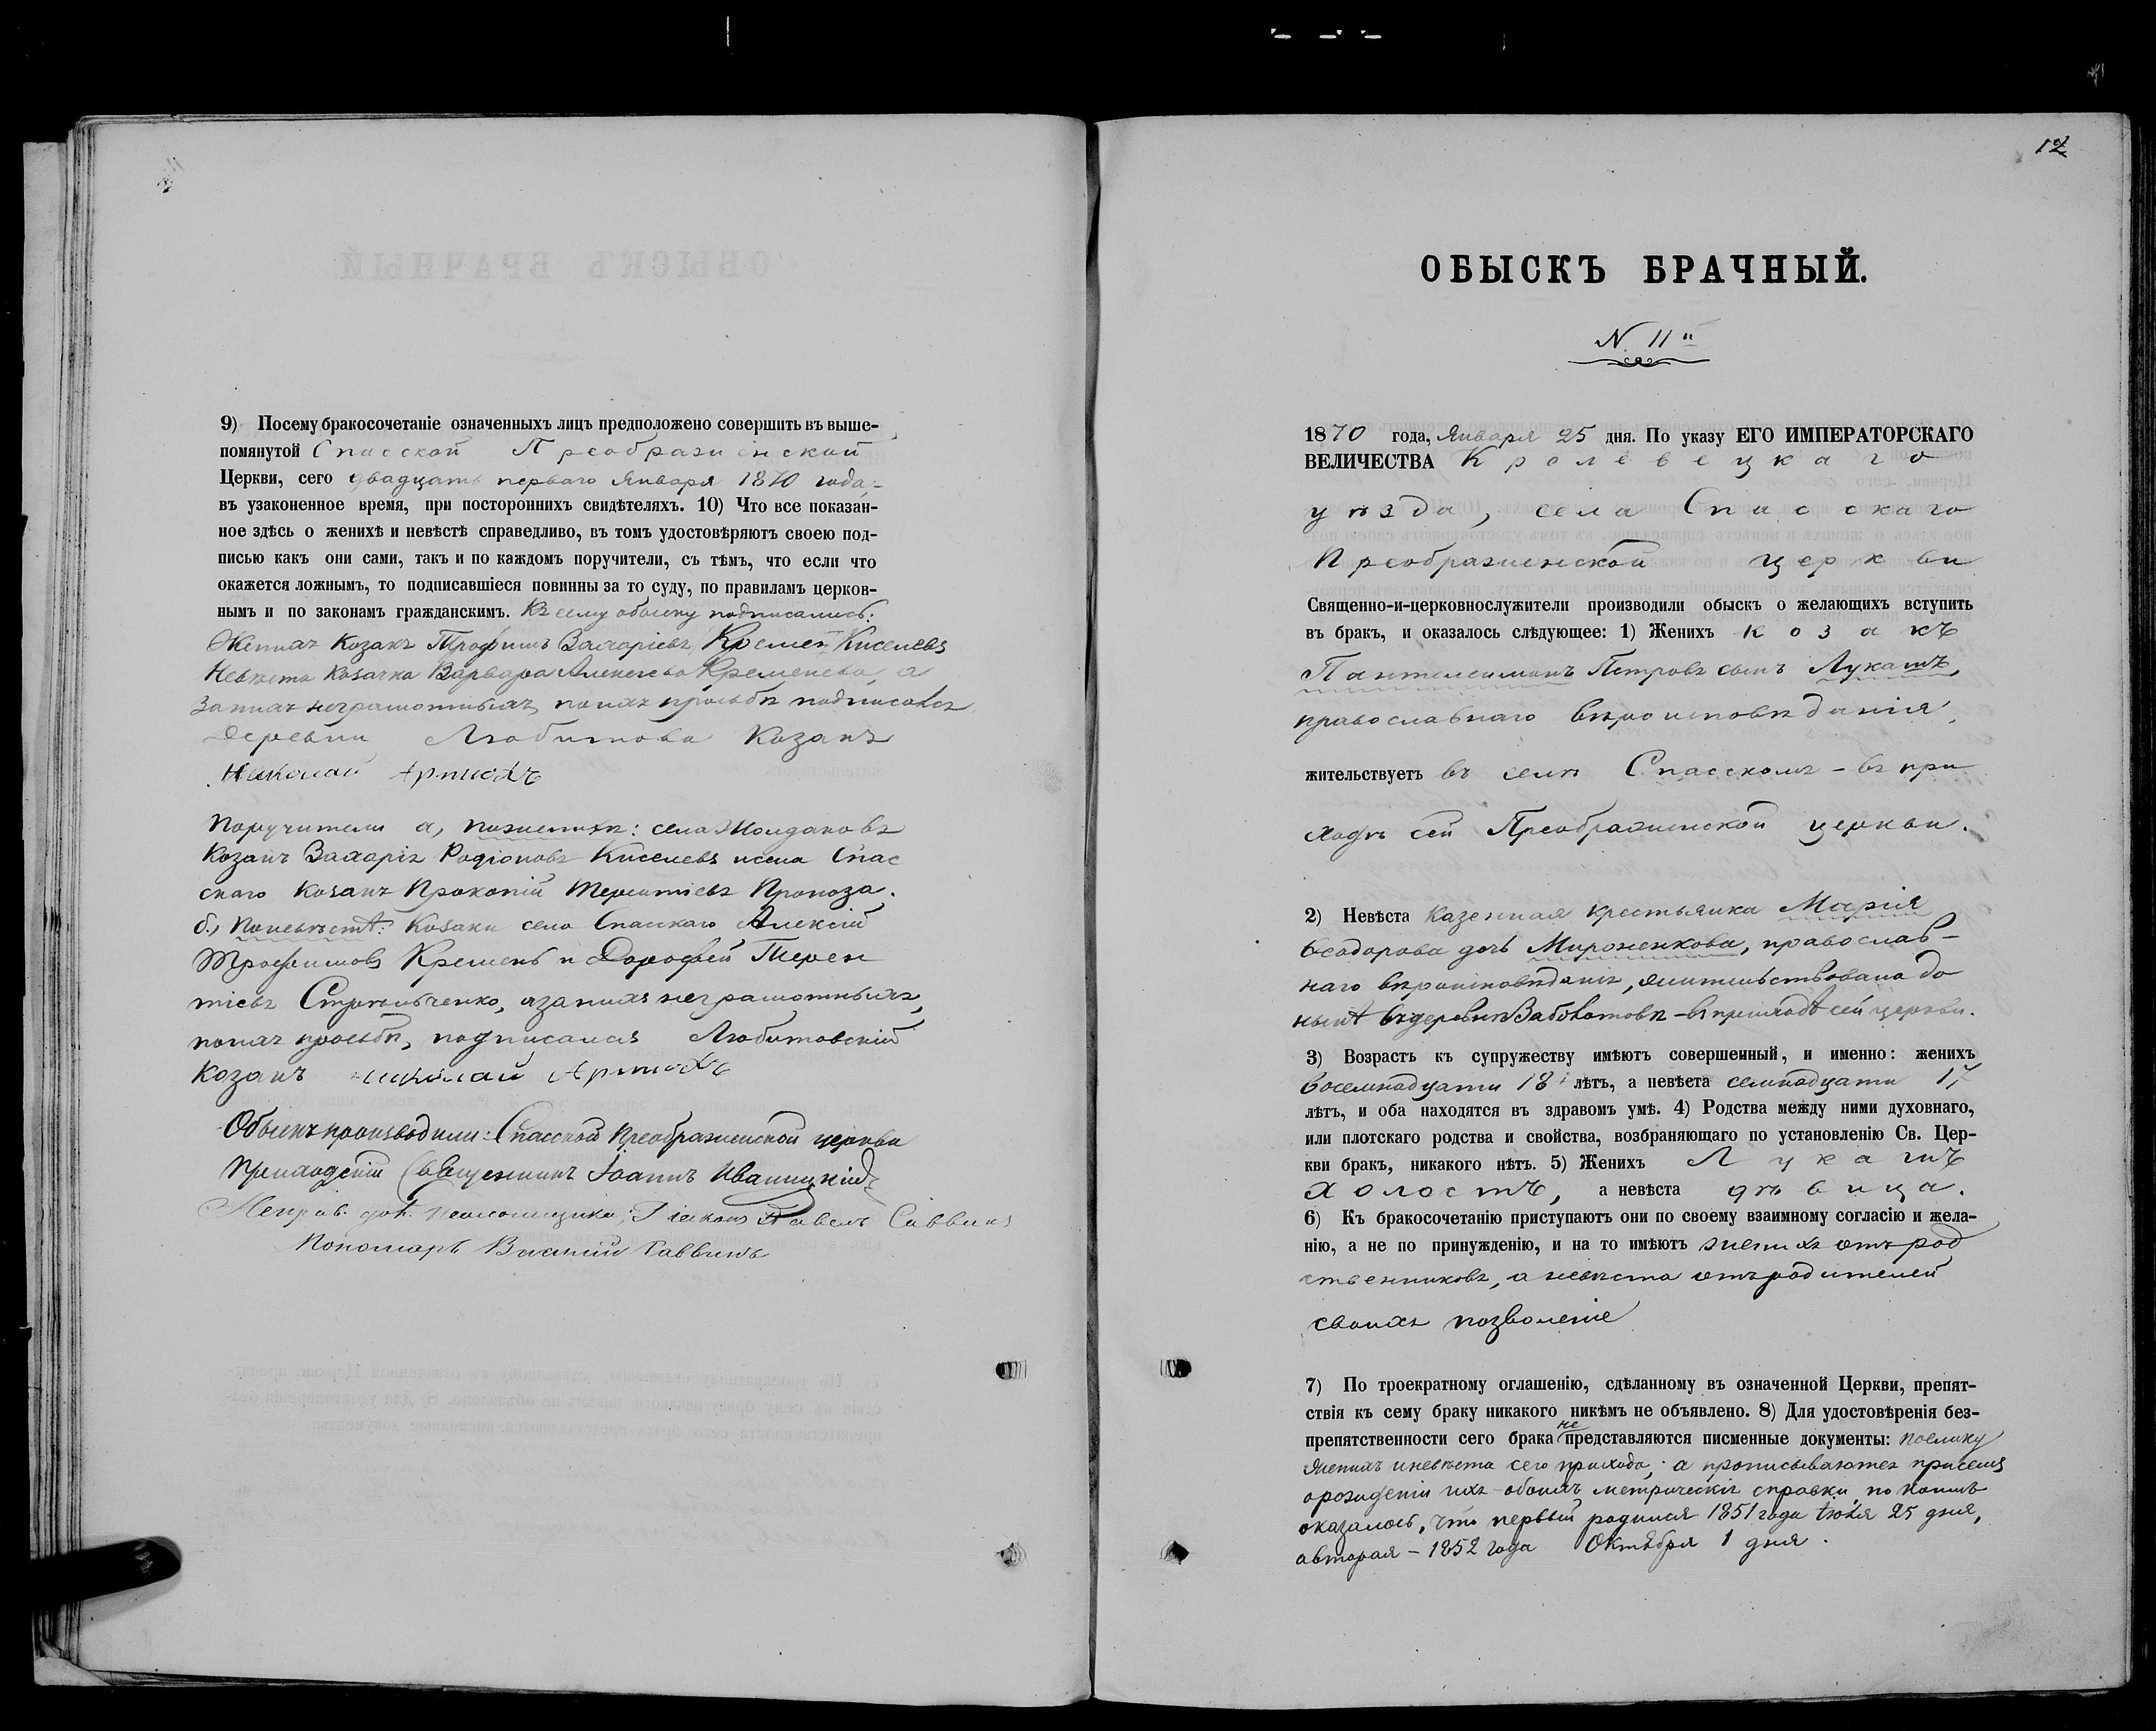 9) Посему бракосочетаніе означенныхъ лицъ предположено совершить въ выше-
помянутой Спасской Преображенской
Церкви, сего двадцать перваго Января 1870 года,-
въ узаконенное время, при постороннихъ свидѣтеляхъ. 10) Что все показан-
ное здѣсь о женихѣ и невѣстѣ справедливо, въ томъ удостовѣряютъ своею под-
писью какъ они сами, такъ и по каждомъ поручители, съ тѣмъ, что если что
окажется ложнымъ, то подписавшіеся повинны за то суду, по правиламъ церков-
нымъ и по законамъ гражданскимъ. Къ сему обыску подписались:
Женихъ Козакъ Трофимъ Захаріевъ Киселевъ
Невѣста Козачка Варвара Алексеева Кременева, а
за нихъ неграмотныхъ, по ихъ прозьбѣ подписался
Деревни Любитова Козакъ
Николай Артюхъ
Поручители а, по женихѣ: села Жолдаковъ
Козакъ Захарія Родіоновъ Киселевъ и села Спас
скаго Козакъ Прокопій Терентіевъ Пропоза.
б, по невѣстѣ: Козаки села Спасскаго Алексій
Трофимовъ Кремень и Дорофей Терен
тіевъ Стрѣльченко, а за нихъ неграмотныхъ,
по ихъ прозьбѣ, подписался Любитовскій
Козакъ Николай Артюхъ
Обыскъ производили: Спасской Преображенской церкви
Приходскій Священникъ Іоаннъ Иваницкій
Исправ. дол. псаломщика, Діаконъ Павелъ Саввинъ
Пономарь Василій Саввинъ
12
ОБЫСКЪ БРАЧНЫЙ.
N 11й
1870 года, Января 25 дня. По указу ЕГО ИМПЕРАТОРСКАГО
ВЕЛИЧЕСТВА Кролевецкаго
уѣзда, села Спасскаго
Преображенской церкви
Священно-и-церковнослужители производили обыск о желающихъ вступить
въ бракъ, и оказалось слѣдующее: 1) Женихъ козакъ
Пантелеимонъ Петровъ сынъ Лукашъ,
православнаго вѣроисповѣданія,
жительствуетъ въ селѣ Спасскомъ - въ при
ходѣ сей Преображенской церкви.
2) Невѣста Казенная крестьянка Марія
Ѳеодорова дочь Мироненкова, православ-
наго вѣроисповѣданія, жительствовала до
нынѣ въ деревнѣ Заболотовѣ - въ приходѣ сей церкви.
3) Возрастъ къ супружеству имѣютъ совершенный, и именно: женихъ
восемнадцати 18 лѣтъ, а невѣста семнадцати 17
лѣтъ, и оба находятся въ здравомъ умѣ. 4) Родства между ними духовнаго,
или плотскаго родства и свойства, возбраняющаго по установленію Св. Цер-
кви бракъ, никакого нѣтъ. 5) Женихъ Лукашъ
холостъ, а невѣста дѣвица.
6) Къ бракосочетанію приступаютъ они по своему взаимному согласію и жела-
нію, а не по принужденію, и на то имѣютъ женихъ отъ род
ственниковъ, а невѣста отъ родителей
своихъ позволеніе
7) По троекратному оглашенію, сдѣланному въ означенной Церкви, препят-
ствія къ сему браку никакого никѣмъ не объявлено. 8) Для удостовѣренія без-
препятственности сего брака не представляются писменные документы: поелику
женихъ и невѣста сего прихода; а прописываются при семъ
о рожденіи ихъ обоихъ метрическія справки, по коимъ
оказалось, что первый родился 1851 года Іюля 25 дня,
а вторая - 1852 года Октября 1 дня.